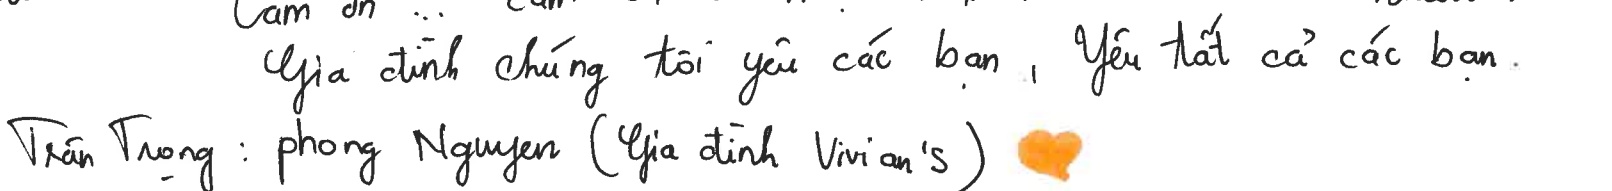 Cảm ơn ...
Gia đình chúng tôi yêu các bạn, Yêu tất cả các bạn.
Trân Trọng : phong Nguyen (Gia đình Vivian's)